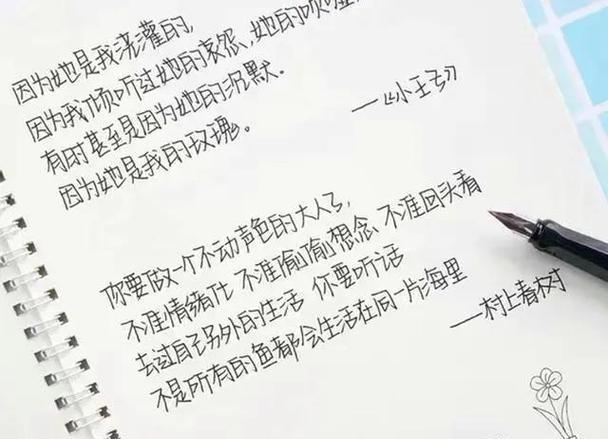 因为她是我浇灌的,
因为我倾听过她的哀怨,她的
有时甚至是因为她的沉默。
因为她是我的玫瑰。
——《小王子》
你要做一个不动声色的大人了,
不准情绪化 不准偷偷想念、不准回头看
去过自己另外的生活 你要听话
不是所有的鱼都会生活在同一片海里
——村上春树